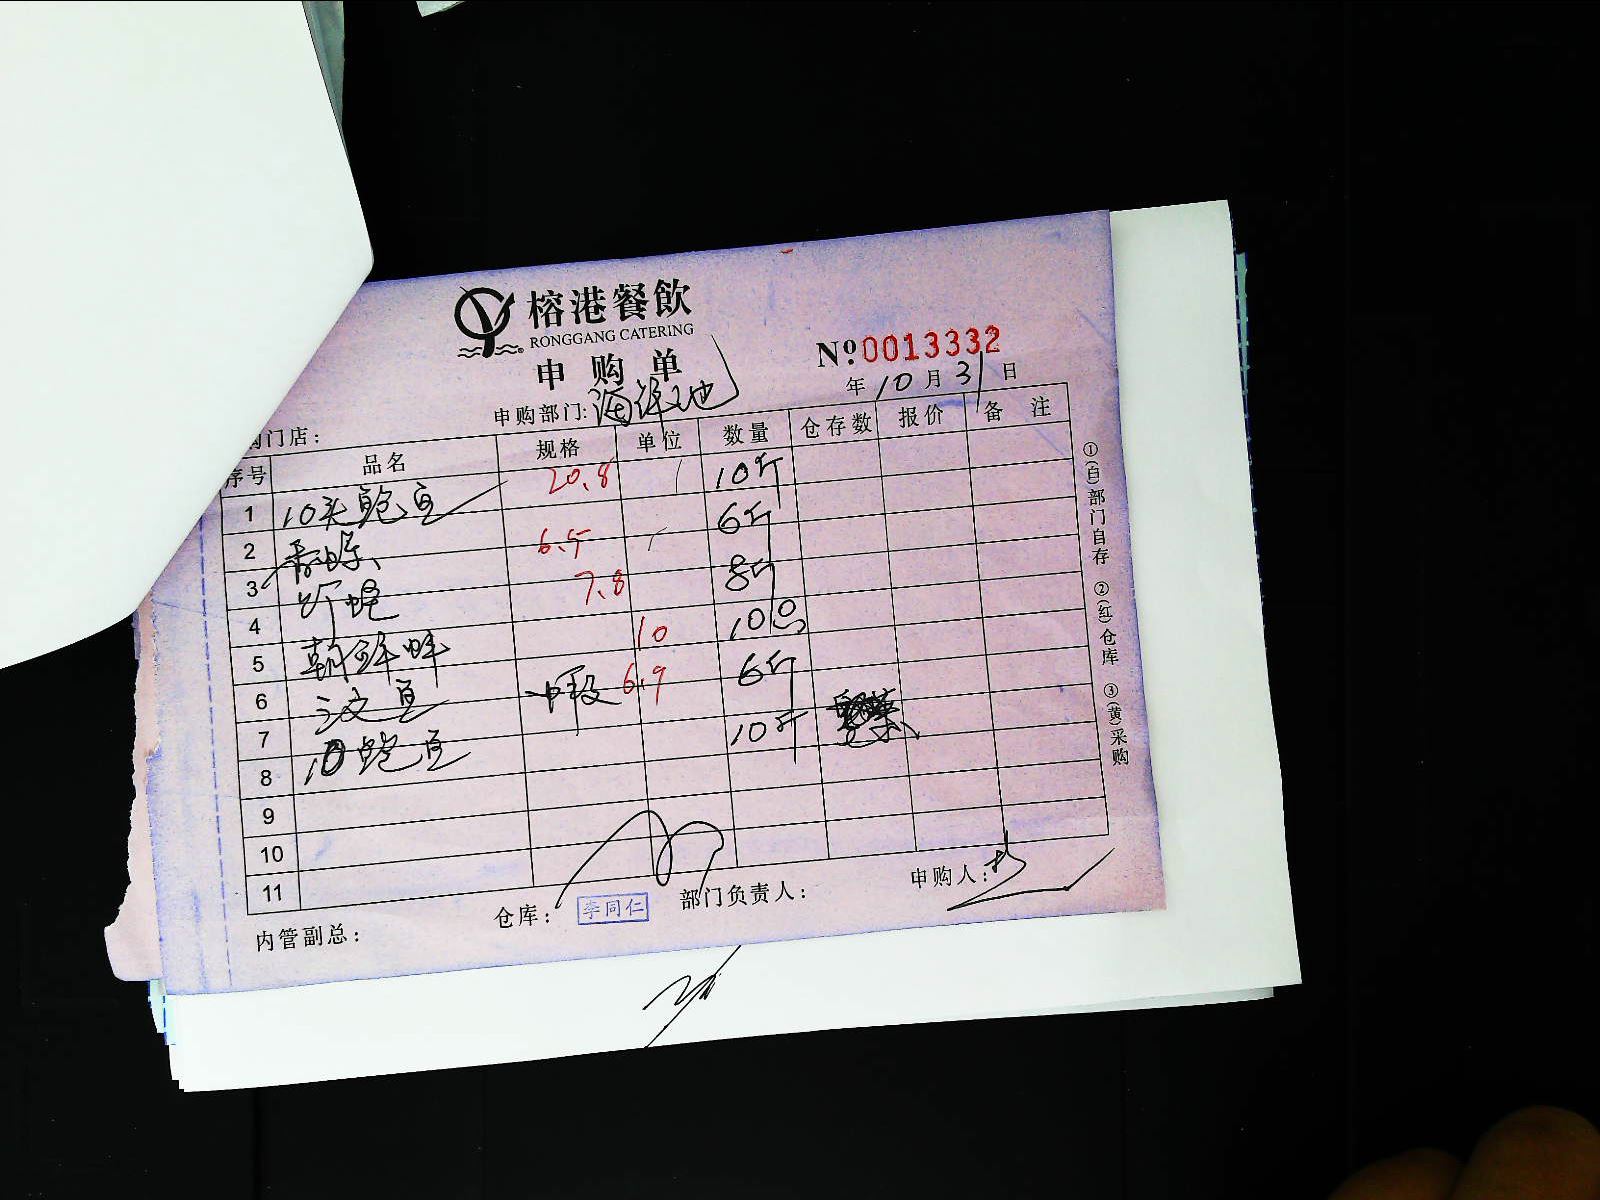 榕港餐飲
RONGGANG CATERING
申购单
№0013332
年10月31日
申购部门:
门店:
序号 品名 规格 单位 数量 仓存数 报价 备注
1 10头鲍鱼 20.8 10斤
2 6.5 6斤
3 7.8 8斤
4 10
5 朝鲜蚌 10 6斤
6 三文鱼 中段 6.9
7 10斤
8 10鲍鱼
9
10
11
①(白)部门自存 ②(红)仓库 ③(黄)采购
内管副总: 仓库: 李同仁 部门负责人: 申购人: